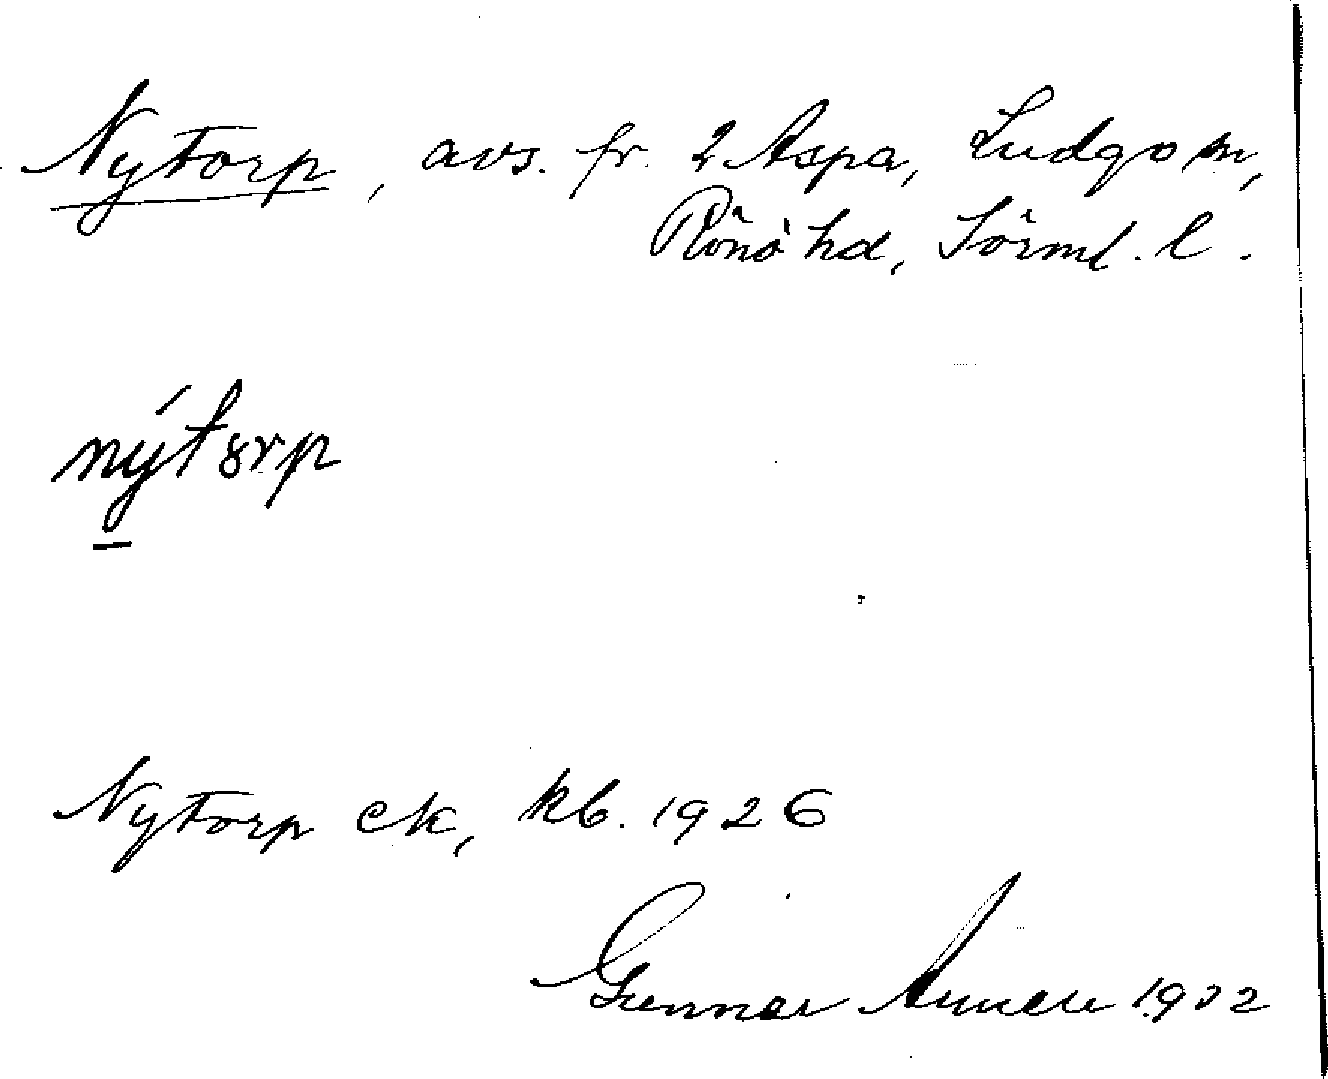 Nytorp, avs. fr. 2 Aspa, Ludgo sn,
Rönö hd, Sörml. l.
nýtorp
Nytorp ek, kb. 1926
Gunnar 1932